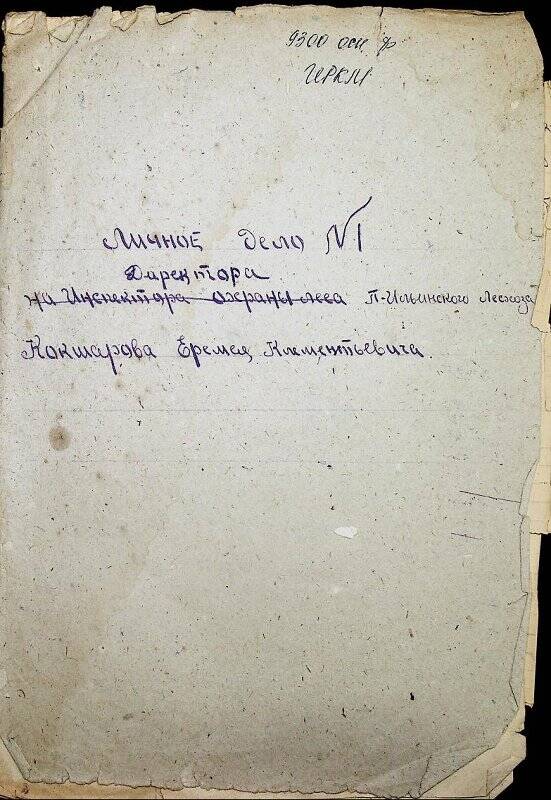 9300 осн ф
ЧРКМ
Личное дело №1
Директора
на Инспектора охраны леса П-Ильинского Лесхоза
Кокшарова Еремея Климентьевича